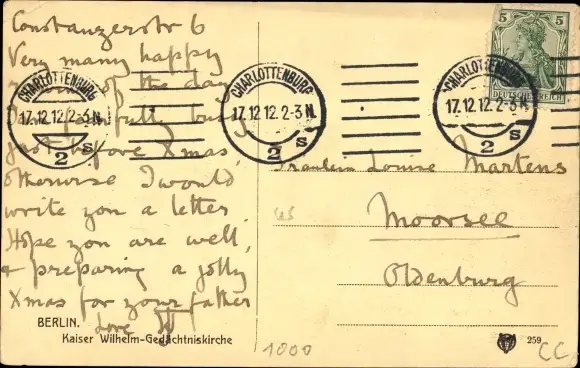 Constanzerstr 6
Very many happy
of the day
fully busy
just before Xmas,
otherwise I would
write you a letter.
Hope you are well,
& preparing a jolly
Xmas for your father
Love
BERLIN.
Kaiser Wilhelm-Gedächtniskirche
CHARLOTTENBURG
17.12.12.2-3N.
2 s
CHARLOTTENBURG
17.12.12.2-3N.
2 s
CHARLOTTENBURG
17.12.12.2-3N.
2 s
5 5
DEUTSCHES REICH
Fräulein Louise Martens
Moorsee
Oldenburg
45
1000
259
CC